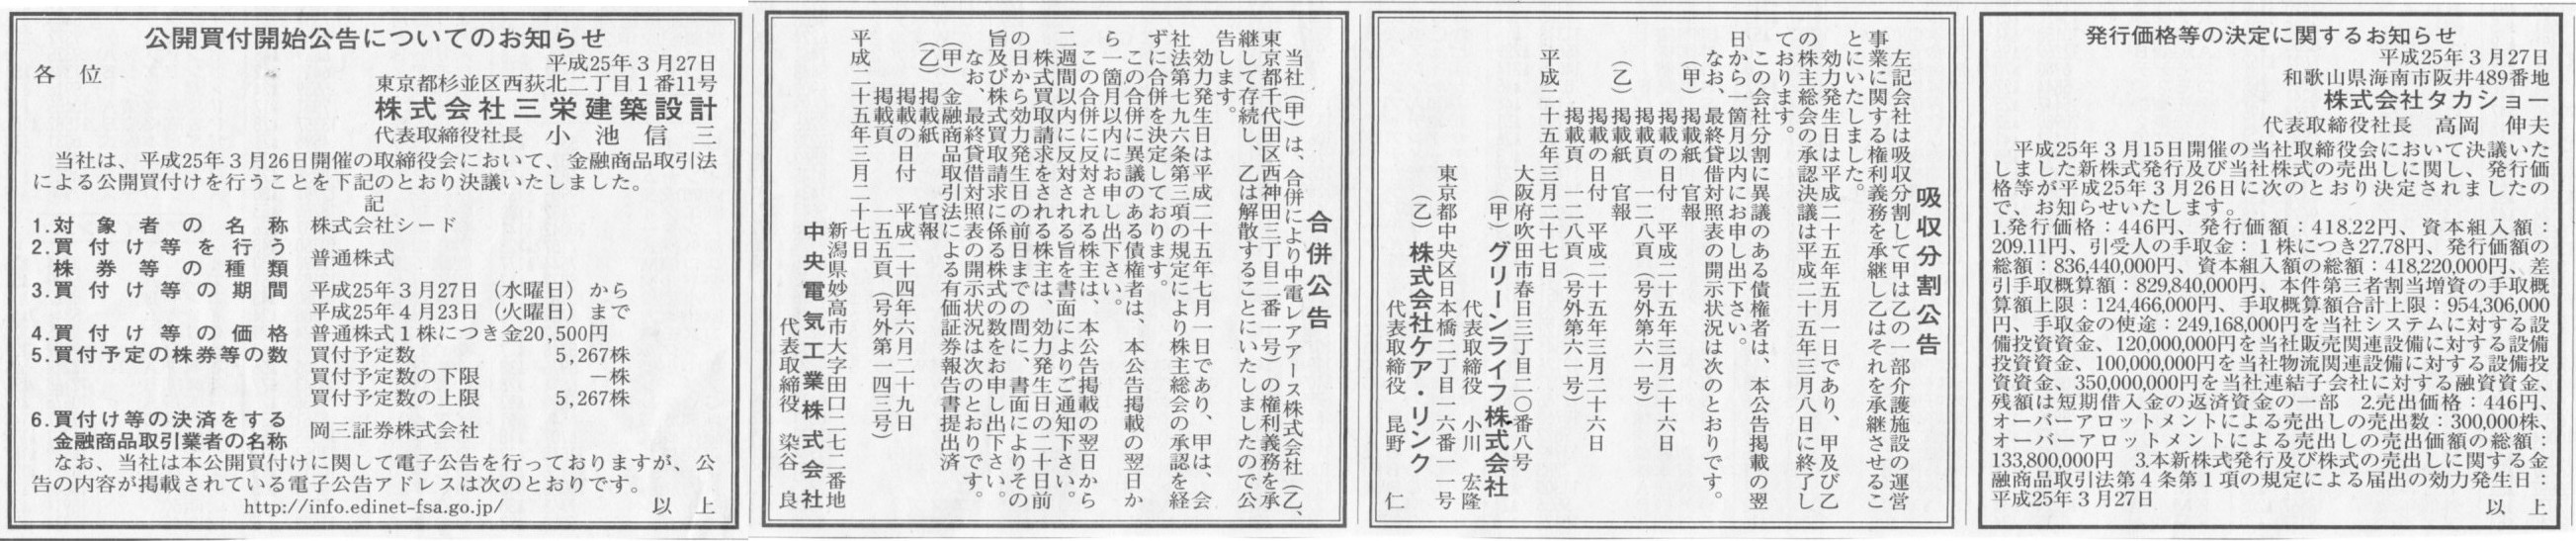 公開買付開始公告についてのお知らせ
平成25年3月27日
各位
東京都杉並区西荻北二丁目1番11号
株式会社三栄建築設計
代表取締役社長 小池信三
当社は、平成25年3月26日開催の取締役会において、金融商品取引法
による公開買付けを行うことを下記のとおり決議いたしました。
記
1.対象者の名称 株式会社シード
2.買付け等を行う
株券等の種類 普通株式
3.買付け等の期間 平成25年3月27日（水曜日）から
平成25年4月23日（火曜日）まで
4.買付け等の価格 普通株式1株につき金20,500円
5.買付予定の株券等の数 買付予定数 5,267株
買付予定数の下限 －株
買付予定数の上限 5,267株
6.買付け等の決済をする
金融商品取引業者の名称 岡三証券株式会社
なお、当社は本公開買付けに関して電子公告を行っておりますが、公
告の内容が掲載されている電子公告アドレスは次のとおりです。
http://info.edinet-fsa.go.jp/ 以上
合併公告
当社（甲）は、合併により中電レアアース株式会社（乙、
東京都千代田区西神田三丁目二番一号）の権利義務を承
継して存続し、乙は解散することにいたしましたので公
告します。
効力発生日は平成二十五年七月一日であり、甲は、会
社法第七九六条第三項の規定により株主総会の承認を経
ずに合併を決定しております。
この合併に異議のある債権者は、本公告掲載の翌日か
ら一箇月以内にお申し出下さい。
この合併に反対される株主は、本公告掲載の翌日から
二週間以内に反対される旨を書面によりご通知下さい。
株式買取請求をされる株主は、効力発生日の二十日前
の日から効力発生日の前日までの間に、書面によりその
旨及び株式買取請求に係る株式の数をお申し出下さい。
なお、最終貸借対照表の開示状況は次のとおりです。
（甲）金融商品取引法による有価証券報告書提出済
（乙）掲載紙 官報
掲載の日付 平成二十四年六月二十九日
掲載頁 一五五頁（号外第一四三号）
平成二十五年三月二十七日
新潟県妙高市大字田口二七二番地
中央電気工業株式会社
代表取締役 染谷 良
吸収分割公告
左記会社は吸収分割して甲は乙の一部介護施設の運営
事業に関する権利義務を承継し乙はそれを承継させるこ
とにいたしました。
効力発生日は平成二十五年五月一日であり、甲及び乙
の株主総会の承認決議は平成二十五年三月八日に終了し
ております。
この会社分割に異議のある債権者は、本公告掲載の翌
日から一箇月以内にお申し出下さい。
なお、最終貸借対照表の開示状況は次のとおりです。
（甲）掲載紙 官報
掲載の日付 平成二十五年三月二十六日
掲載頁 一二八頁（号外第六一号）
（乙）掲載紙 官報
掲載の日付 平成二十五年三月二十六日
掲載頁 一二八頁（号外第六一号）
平成二十五年三月二十七日
大阪府吹田市春日三丁目二〇番八号
（甲）グリーンライフ株式会社
代表取締役 小川 宏隆
東京都中央区日本橋二丁目一六番一一号
（乙）株式会社ケア・リンク
代表取締役 昆野 仁
発行価格等の決定に関するお知らせ
平成25年3月27日
和歌山県海南市阪井489番地
株式会社タカショー
代表取締役社長 高岡 伸夫
平成25年3月15日開催の当社取締役会において決議いた
しました新株式発行及び当社株式の売出しに関し、発行価
格等が平成25年3月26日に次のとおり決定されましたの
で、お知らせいたします。
1.発行価格：446円、発行価額：418.22円、資本組入額：
209.11円、引受人の手取金：1株につき27.78円、発行価額の
総額：836,440,000円、資本組入額の総額：418,220,000円、差
引手取概算額：829,840,000円、本件第三者割当増資の手取概
算額上限：124,466,000円、手取概算額合計上限：954,306,000
円、手取金の使途：249,168,000円を当社システムに対する設
備投資資金、120,000,000円を当社販売関連設備に対する設備
投資資金、100,000,000円を当社物流関連設備に対する設備投
資資金、350,000,000円を当社連結子会社に対する融資資金、
残額は短期借入金の返済資金の一部 2.売出価格：446円、
オーバーアロットメントによる売出しの売出数：300,000株、
オーバーアロットメントによる売出しの売出価額の総額：
133,800,000円 3.本新株式発行及び株式の売出しに関する金
融商品取引法第4条第1項の規定による届出の効力発生日：
平成25年3月27日 以上